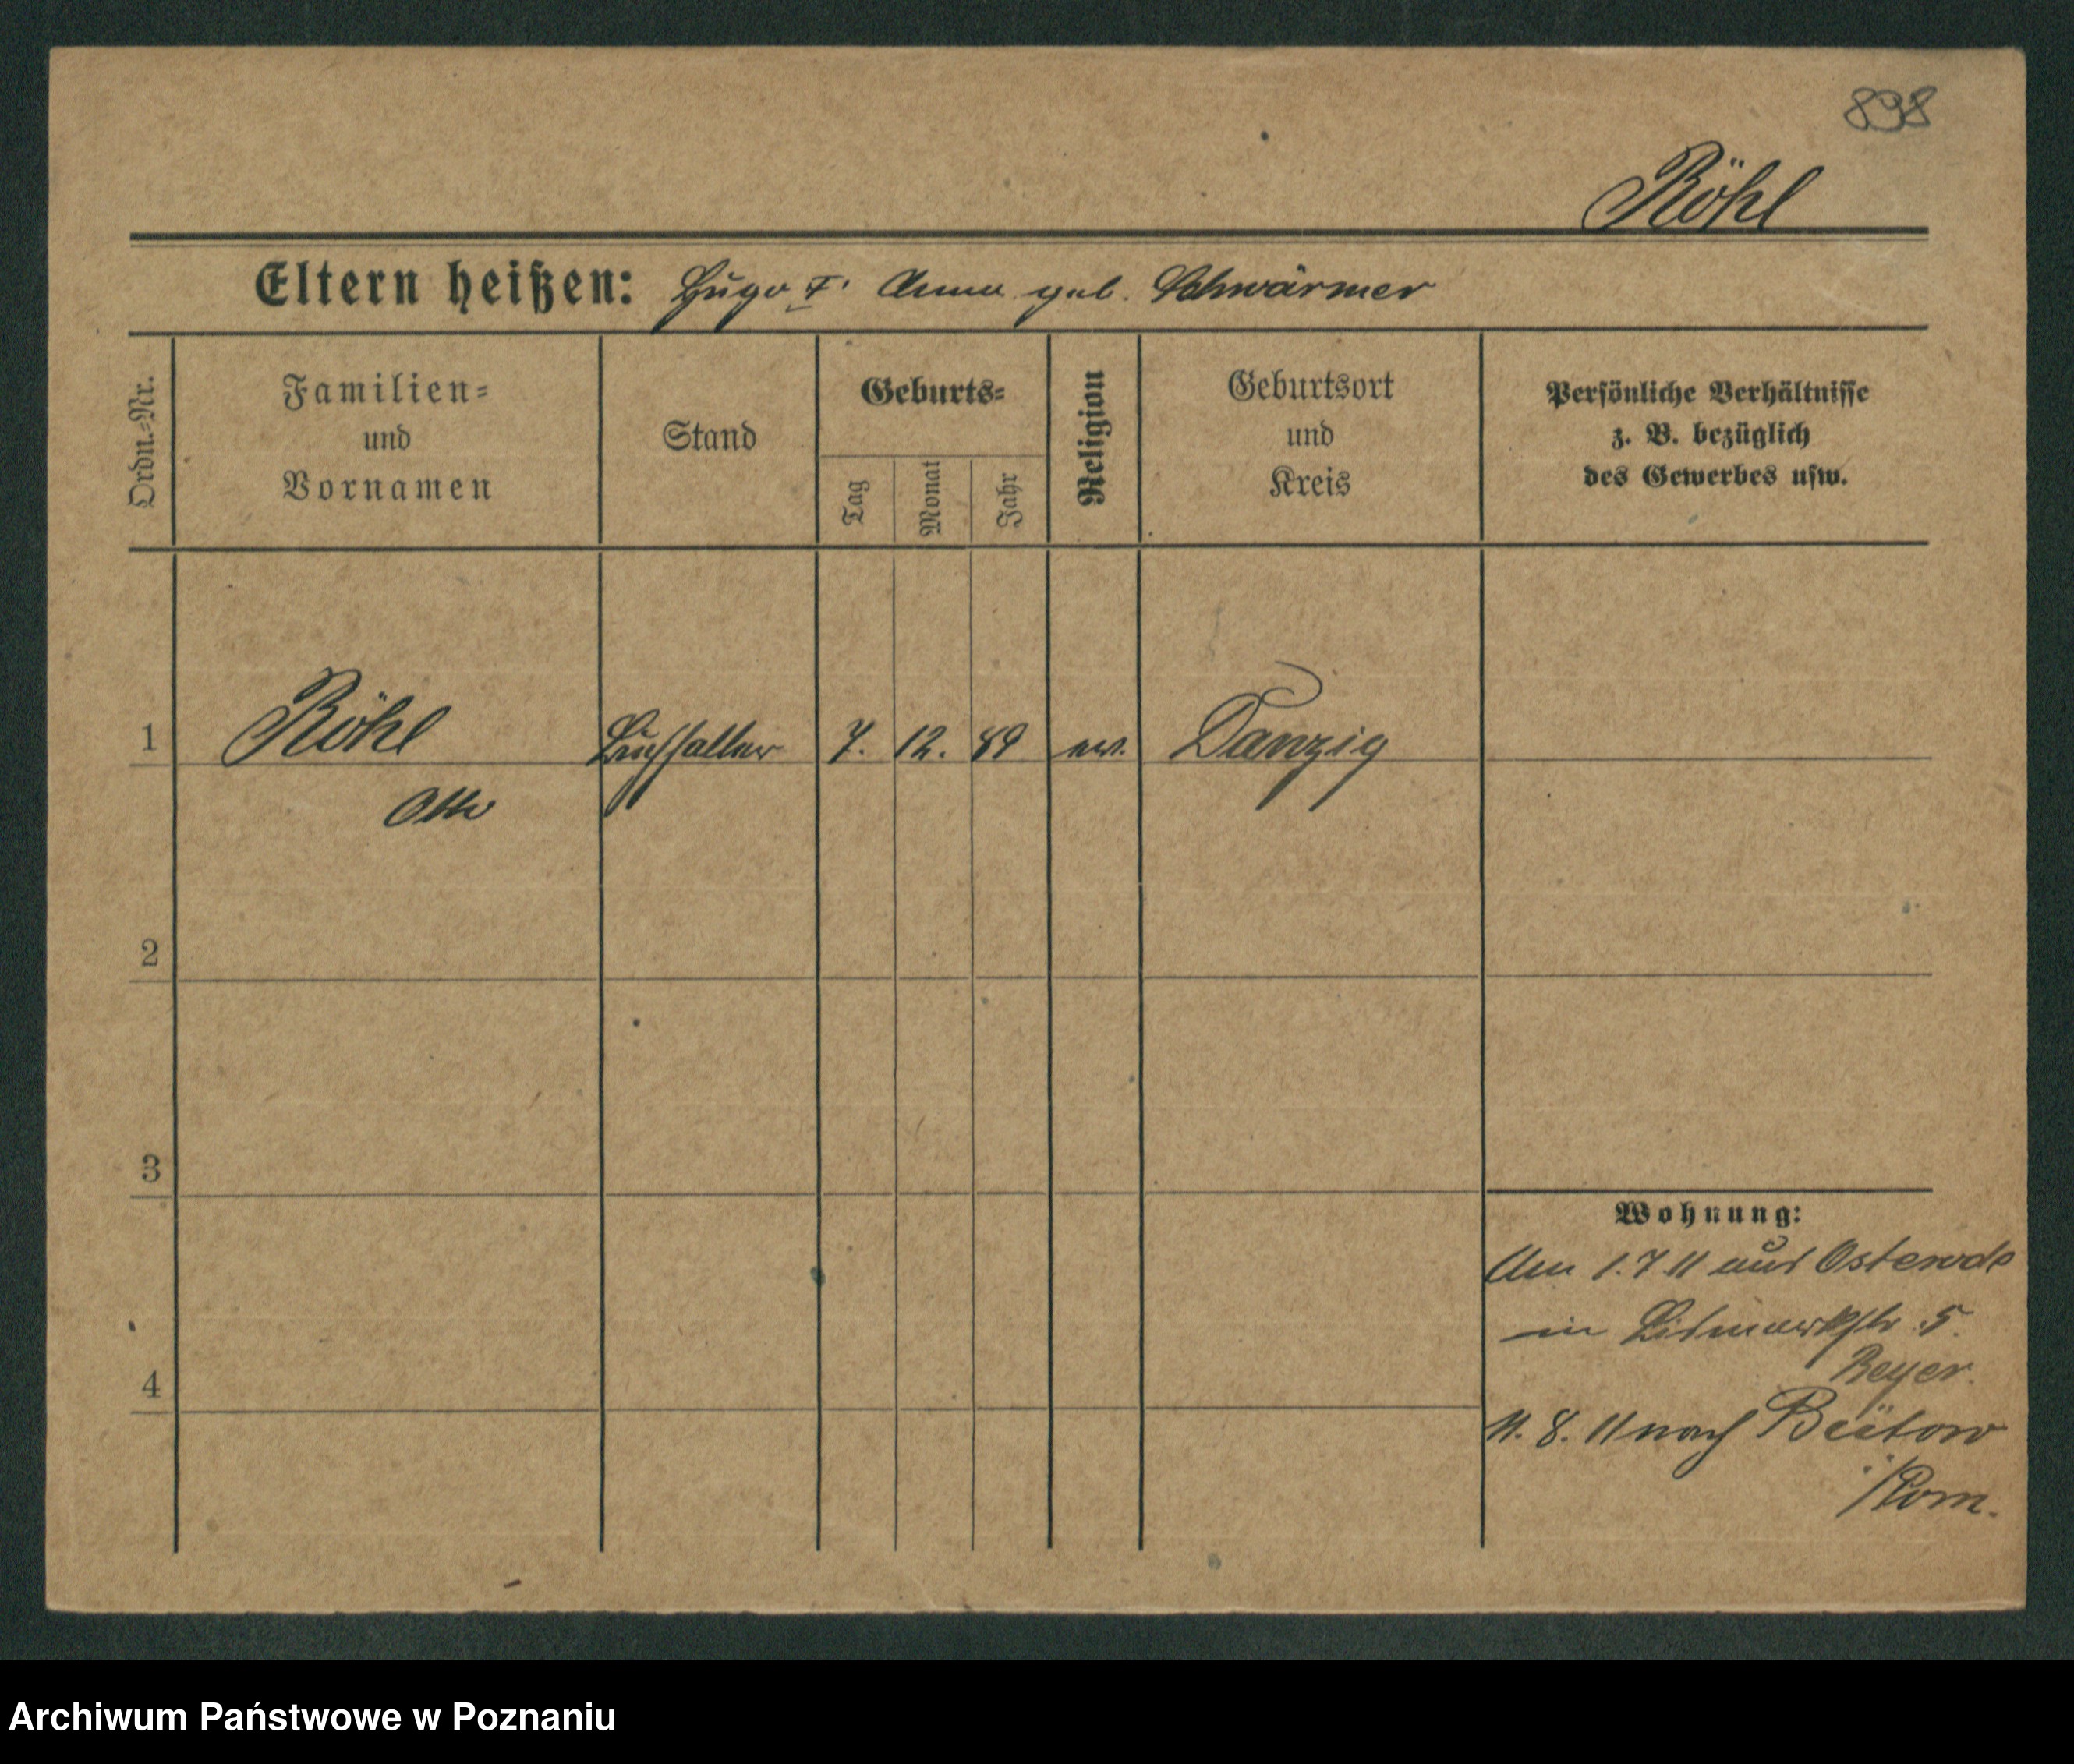 898
Röhl
Eltern heißen: Hugo u. Anna geb. Schwärmer
Ordn.-Nr.
Familien-
und
Vornamen
Stand
Geburts-
Tag
Monat
Jahr
Religion
Geburtsort
und
Kreis
Persönliche Verhältnisse
z. B. bezüglich
des Gewerbes usw.
1 Röhl Buchhalter 7. 12. 89 ev. Danzig
Otto
2
3
4
Wohnung:
Am 1.7.11 aus Osterode
in Bismarckstr. 5.
Beyer.
11. 8. 11 nach Bütow
/Pom.
Archiwum Państwowe w Poznaniu